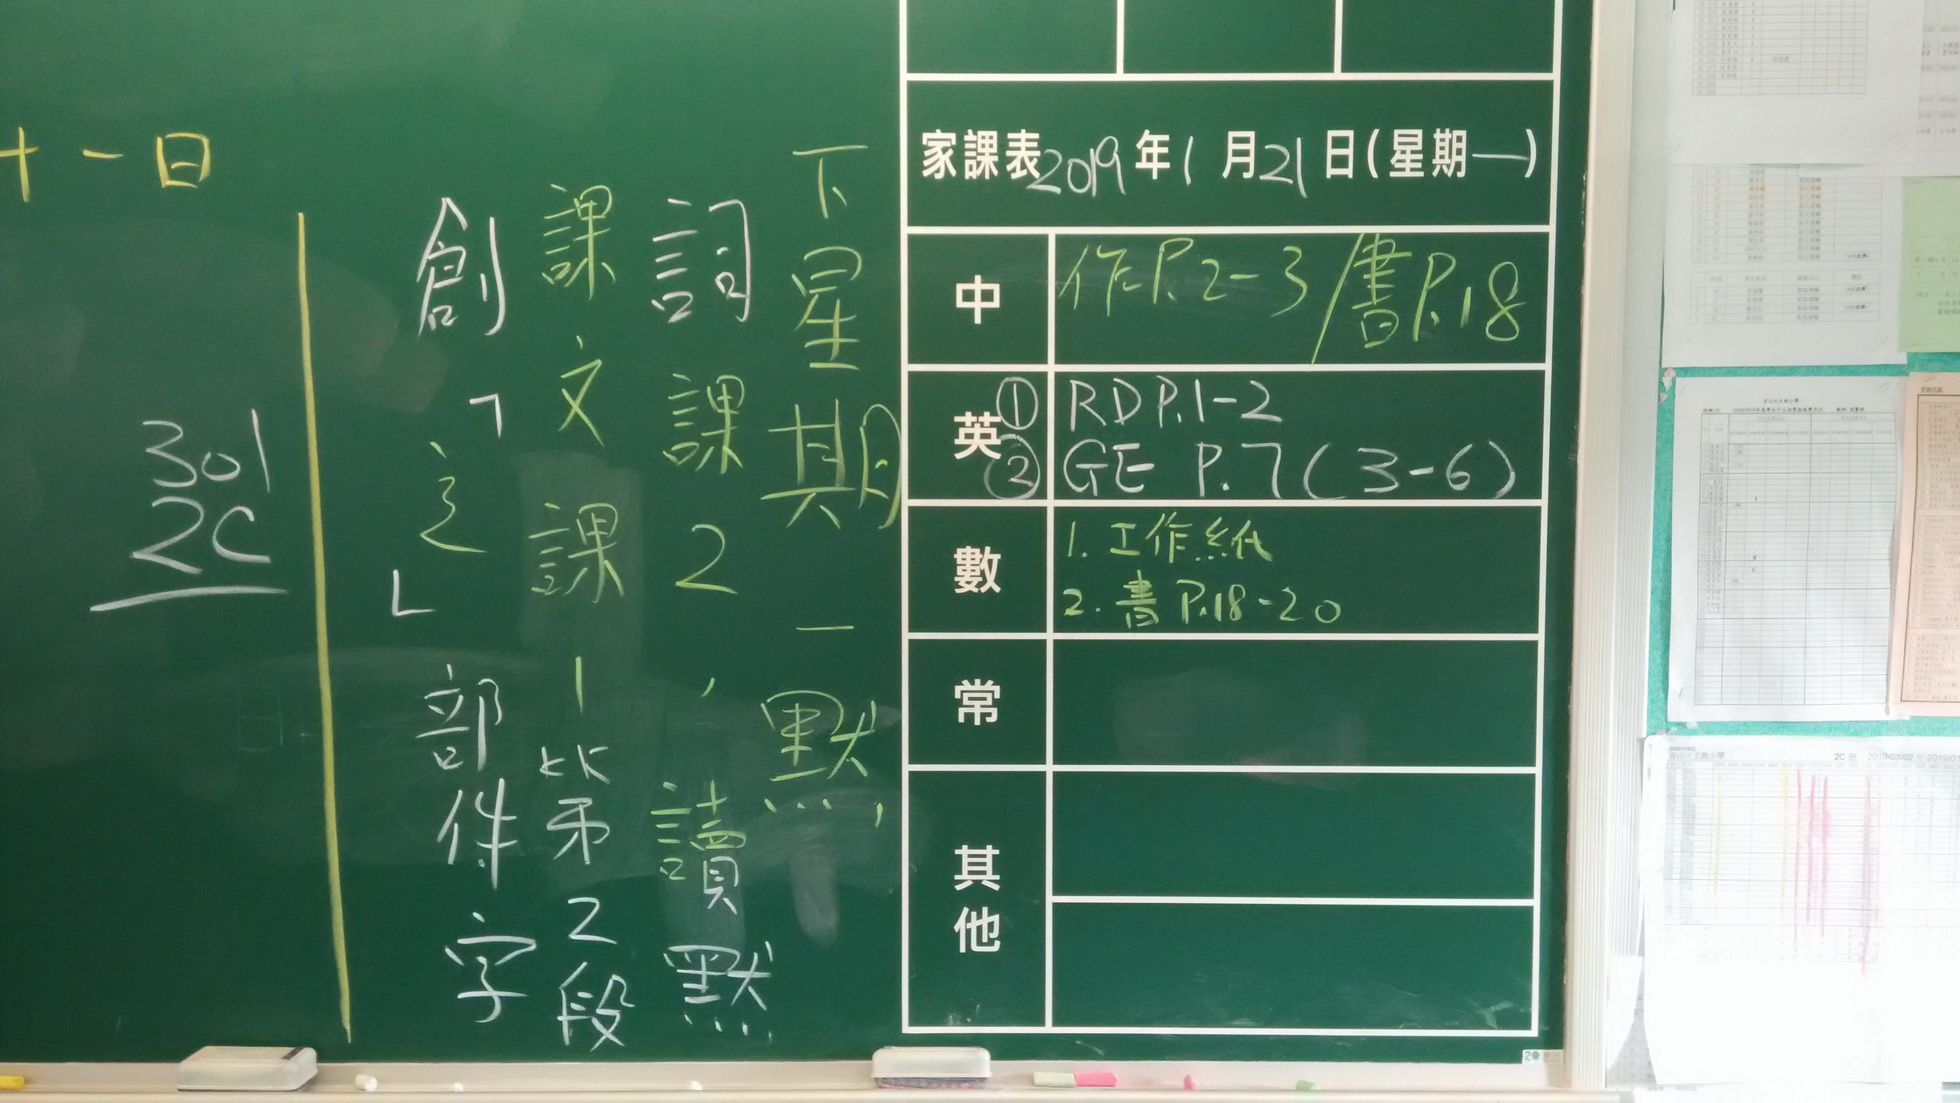 十一日
301
2C
下星期一默
詞課2，讀默
課文課1第2段
創「辶」部件字
家課表2019年1月21日(星期一)
中 作P.2-3/書P.18
英 ① RD P.1-2
② GE P.7(3-6)
數 1. 工作紙
2. 書P.18-20
常
其他